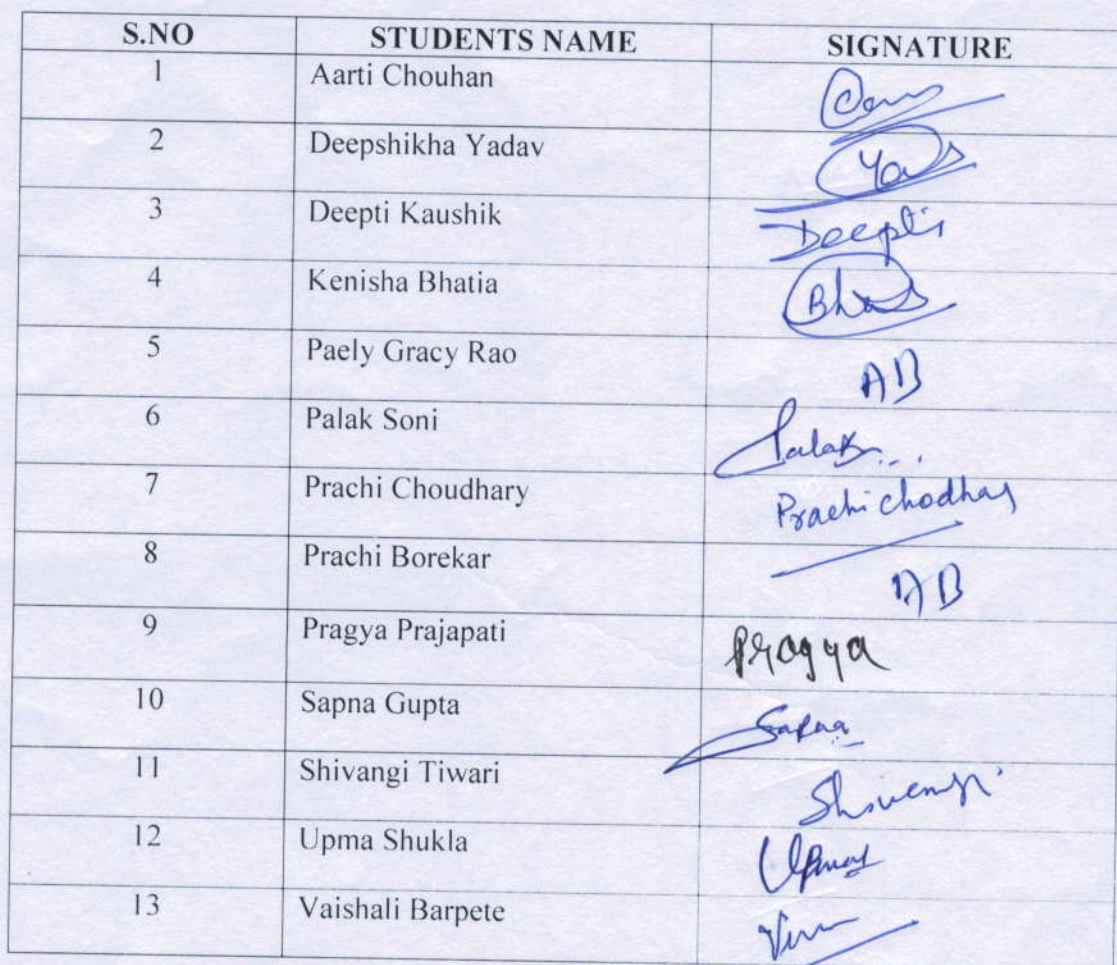 S.NO STUDENTS NAME SIGNATURE
1 Aarti Chouhan
2 Deepshikha Yadav
3 Deepti Kaushik Deepti
4 Kenisha Bhatia
5 Paely Gracy Rao AB
6 Palak Soni Palak
7 Prachi Choudhary Prachi Chodhay
8 Prachi Borekar AB
9 Pragya Prajapati Pragya
10 Sapna Gupta Sapna
11 Shivangi Tiwari
12 Upma Shukla
13 Vaishali Barpete